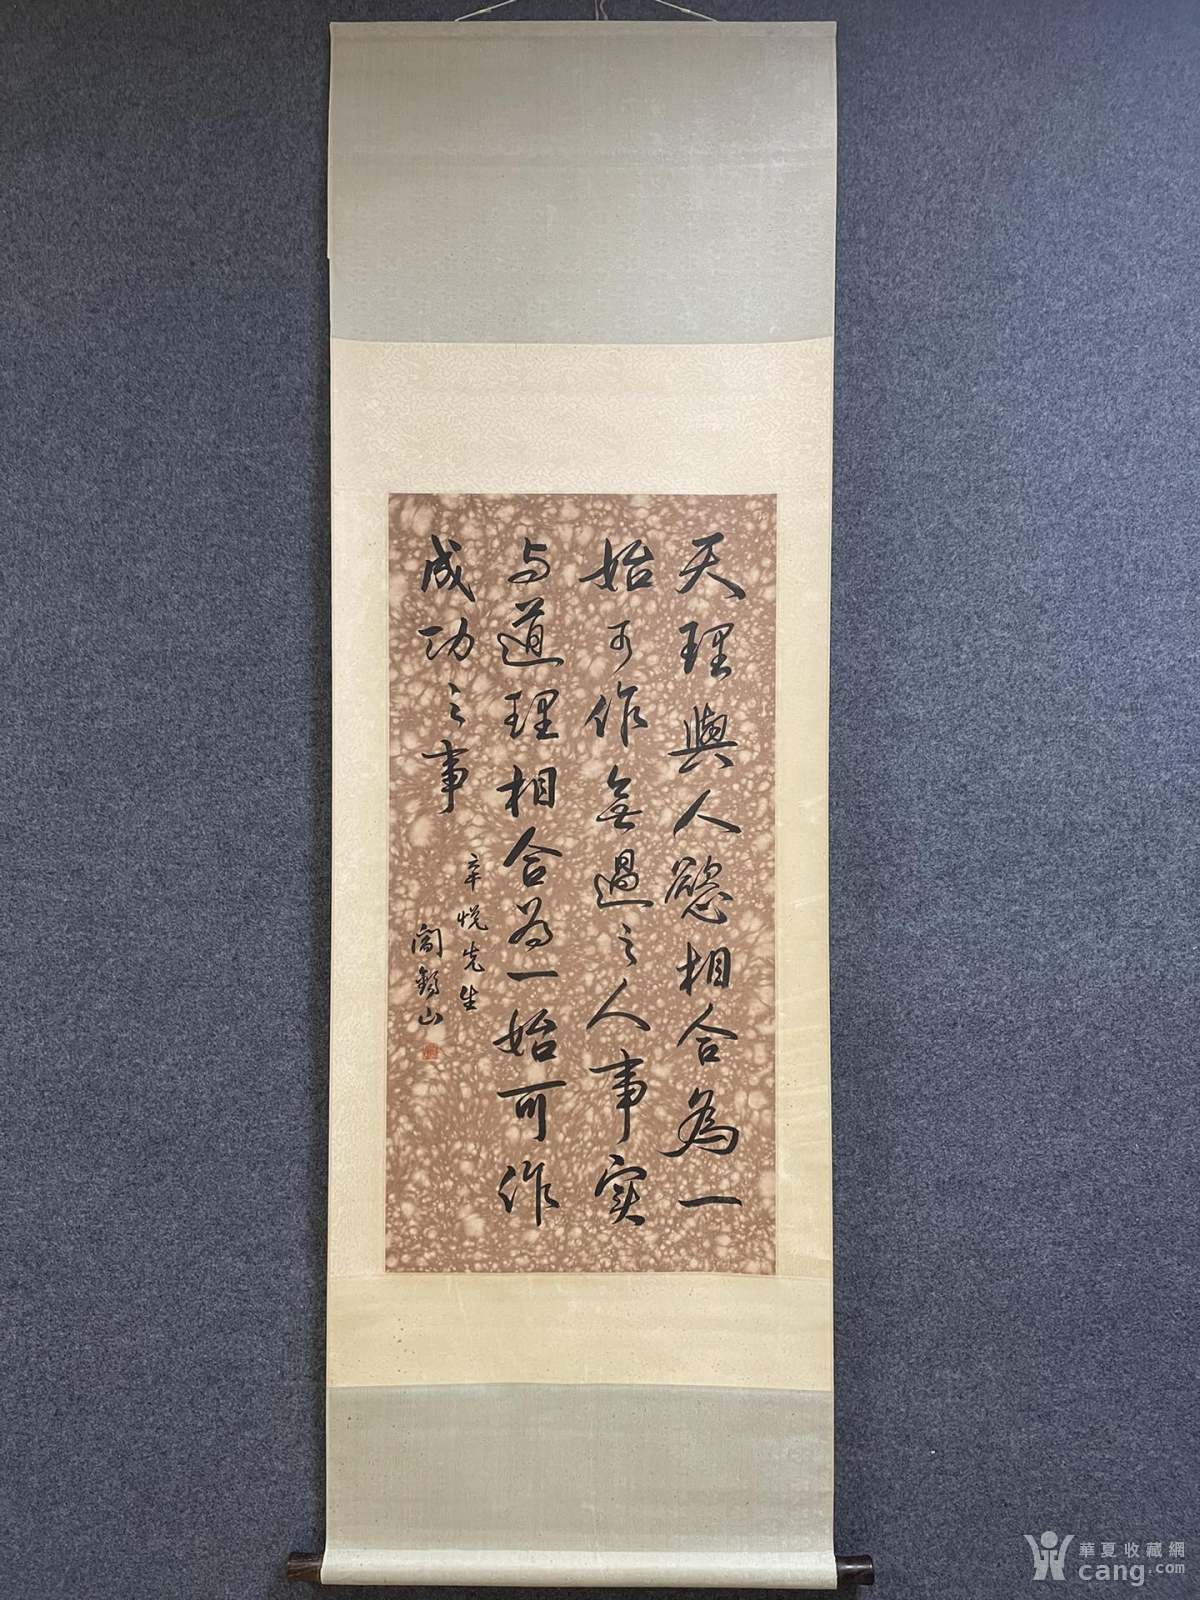 天理與人慾相合為一
始可作無過之人事实
与道理相合为一始可作
成功之事
辛悦先生
閻錫山
華夏收藏網
cang.com